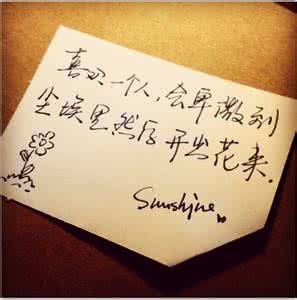 喜欢一个人，会卑微到
尘埃里然后开出花来.
Sunshine